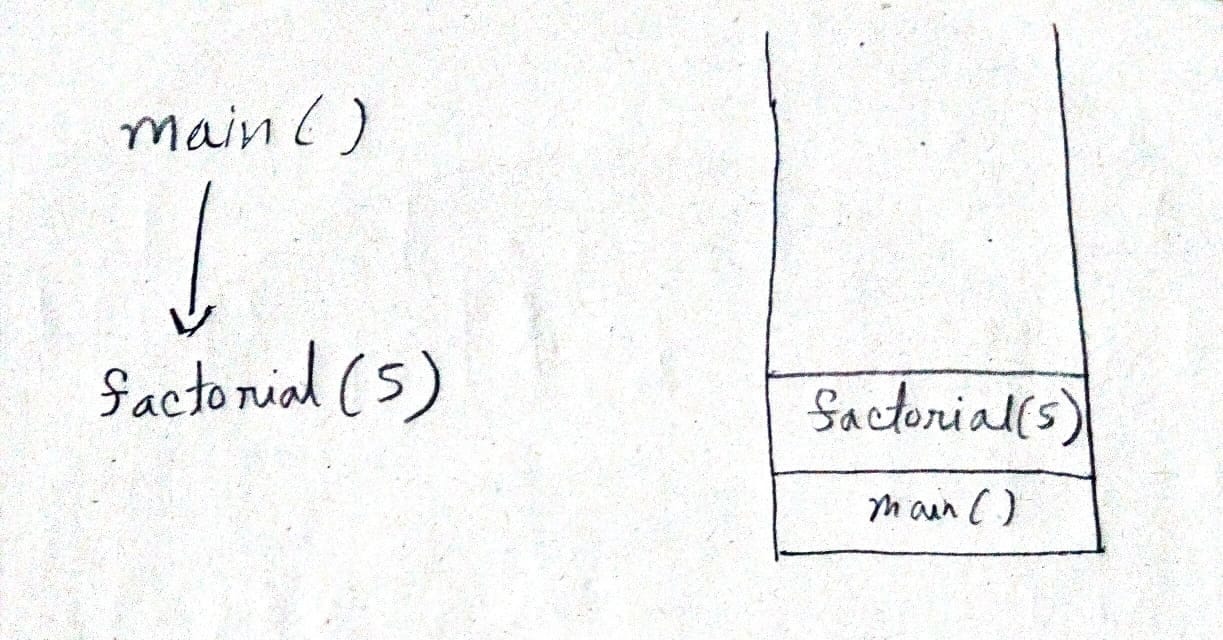 main()
factorial(5)
factorial(5)
main()